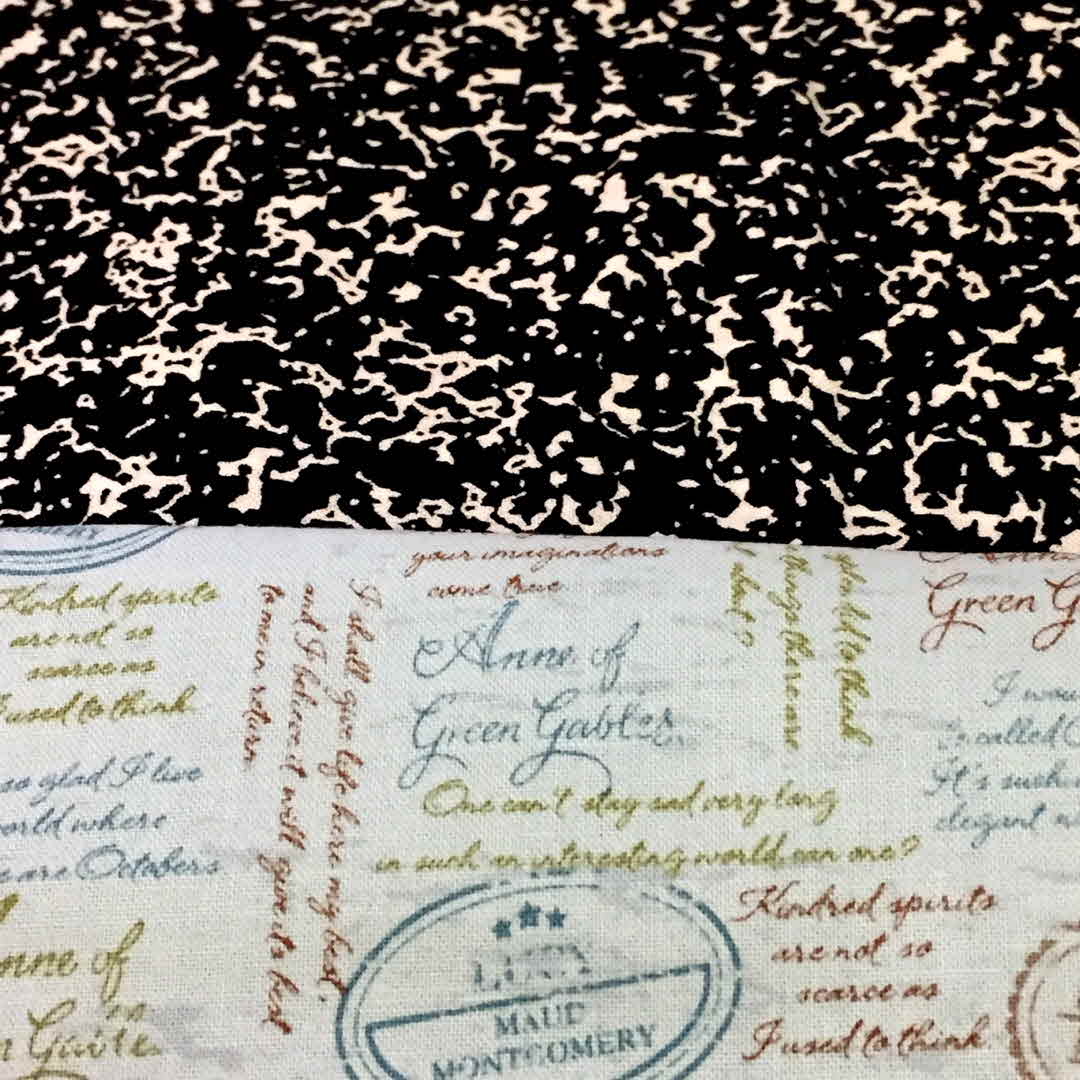 your imaginations
come true
Green G
Kindred spirits
are not so
scarce as
I used to think
I shall give life here my best,
and I believe it will give its best
to me in return
Anne of
Green Gables
things there are
glad to think
One can't stay sad very long
in such an interesting world, can one?
so glad I live
world where
are Octobers
is called
It's such
elegant
nne of
n Gable
LUCY
MAUD
MONTGOMERY
Kindred spirits
are not so
scarce as
I used to think